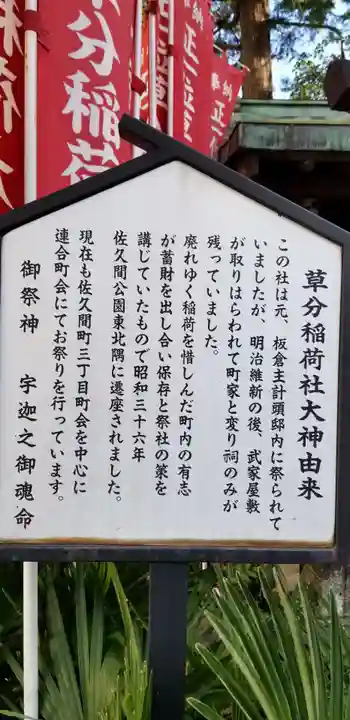 草分稲荷
正一位草
正一位
草分稲荷社大神由来
この社は元、板倉主計頭邸内に祭られて
いましたが、明治維新の後、武家屋敷
が取りはらわれて町家と変り祠のみが
残っていました。
廃れゆく稲荷を惜しんだ町内の有志
が蓄財を出し合い保存と祭社の策を
講じていたもので昭和三十六年
佐久間公園東北隅に遷座されました。
現在も佐久間町三丁目町会を中心に
連合町会にてお祭りを行っています。
御祭神　宇迦之御魂命